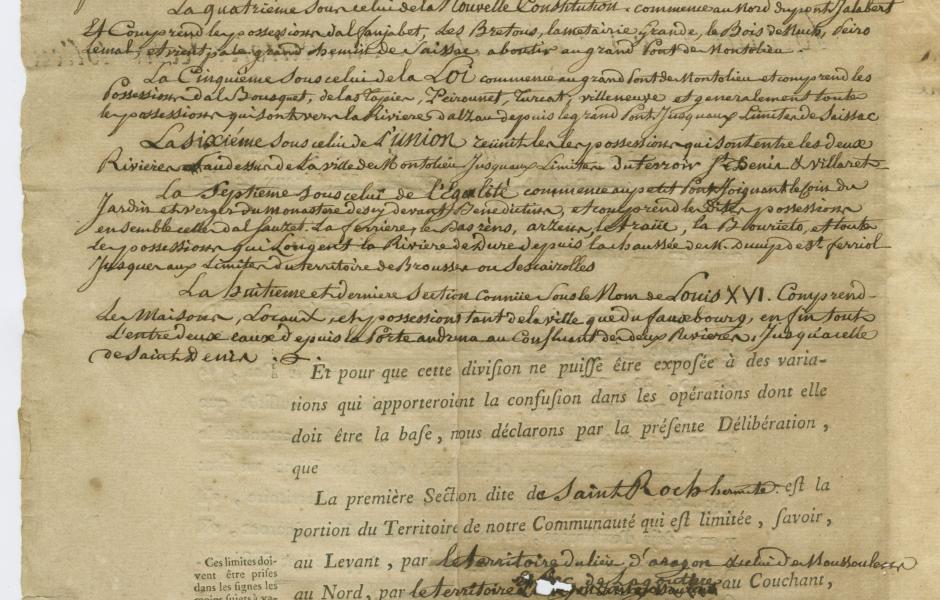 La quatriéme sous celui de la Nouvelle Constitution. commence au Nord du pont Jalabert
Et Comprend les possessions dal fanjabet, Les Bretous, la metairie grande, le Bois de
et vient par le grand chemin de Saissac, aboutir au grand Pont de Montolieu.
La Cinquiéme sous celui de la Loi commence au grand Pont de Montolieu et comprend les
Possessions dal Bousquet, de las Tapies, Peirounet, Turcat, villeneuve et generalement toute
les possessions qui sont vers la Riviere d'alzau depuis le grand Pont Jusqu'aux Limites de Saissac
La sixiéme sous celui de L'union reünit les possessions qui sont entre les deux
Rivieres audessus de La ville de Montolieu Jusqu'aux Limites du terroir St. Denis & villaret
La Septieme sous celui de l'égalité commence au petit Pont Joignant le coin du
Jardin et verger du monastere des cy devant Bénédictins, et comprend les dites possessions
ensemble celles dal fauzet. La ferriere, les Bazens, arzens, le traue, la Blourieto, et toute
les possessions qui Longent la Riviere de dure depuis la chaussée de M. de St. ferriol
Jusques aux Limites du territoire de Brousses ou Sescairolles
La huitieme et derniere Section Connüe Sous le Nom de Louis XVI. Comprend
Les Maisons, Locaux, et possessions tant de la ville que du fauxbourg, enfin tout
L'entre deux eaux depuis la Porte andrma au Confluant des deux Rivieres, Jusqu'a celle
de Saint Denis
Et pour que cette division ne puisse être exposée à des varia-
tions qui apporteroient la confusion dans les opérations dont elle
doit être la base, nous déclarons par la présente Délibération,
que
La première Section dite de Saint Roch hermite. est la
portion du Territoire de notre Communauté qui est limitée, savoir,
au Levant, par le territoire du lieu d'aragon & celui de Moussoulens
au Nord, par le territoire au Couchant,
Ces limites doi-
vent être prises
dans les signes les
moins sujets à va-